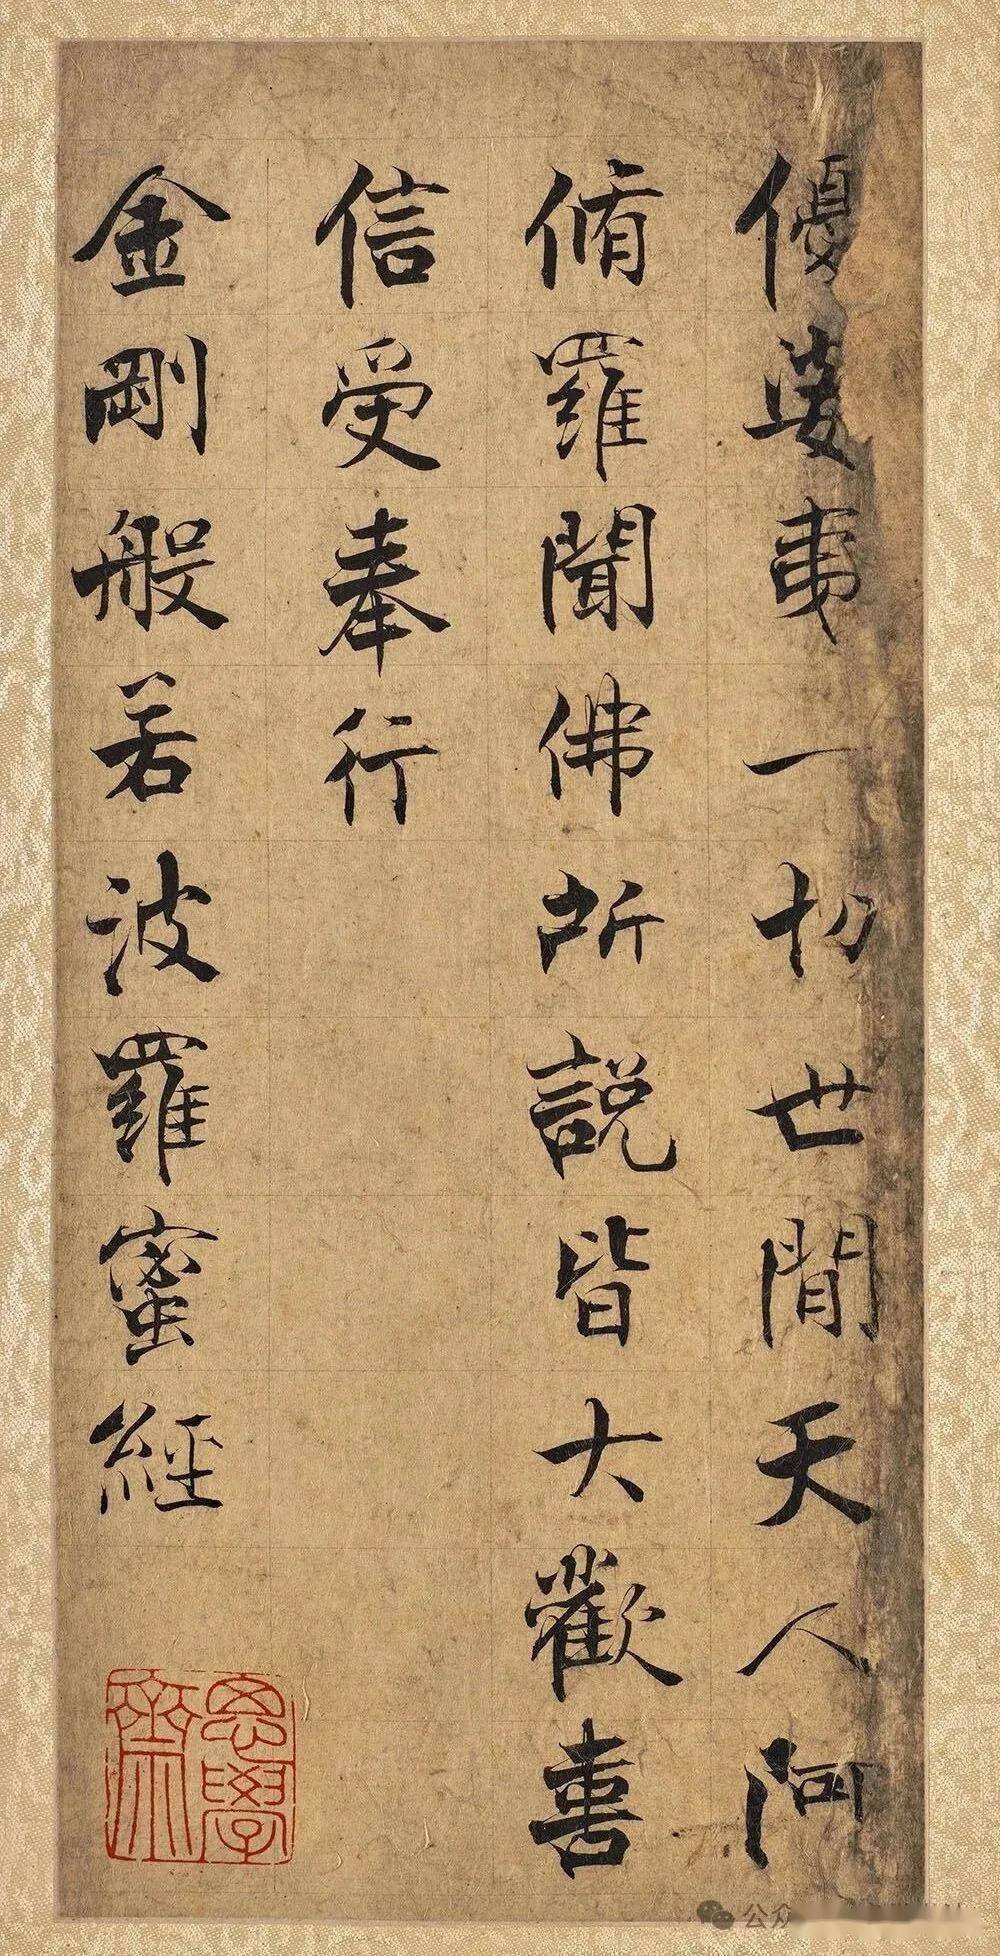 優婆夷一切世間天人阿
脩羅聞佛所說皆大歡喜
信受奉行
金剛般若波羅蜜經
思學齋
公众